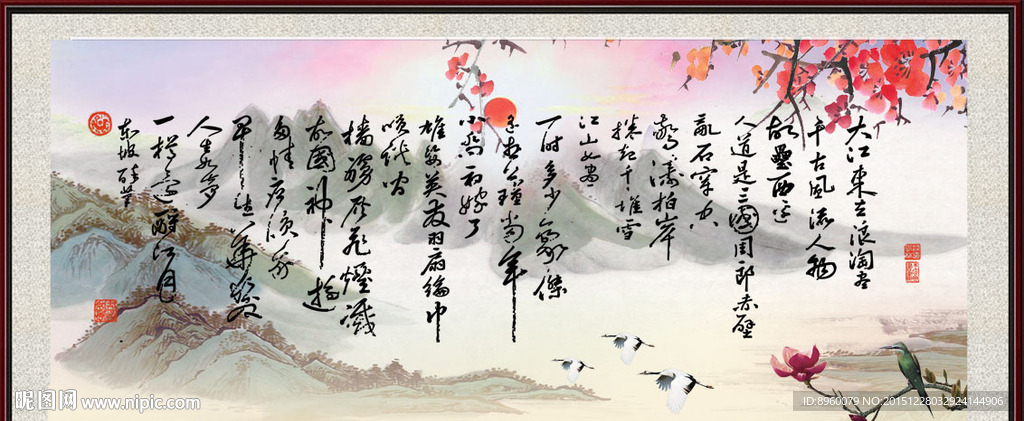 大江東去浪淘盡
千古風流人物
故壘西邊
人道是三國周郎赤壁
亂石穿空
驚濤拍岸
捲起千堆雪
江山如畫
一時多少豪傑
遙想公瑾當年
小喬初嫁了
雄姿英发羽扇綸巾
笑談間
檣櫓灰飛煙滅
故國神遊
多情應笑我
早生華髮
人生如夢
一樽還酹江月
東坡
昵图网 www.nipic.com
ID:8960079 NO:20151228032924144906